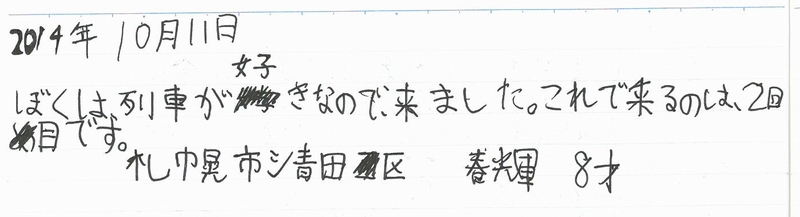 2014年 10月11日
ぼくは列車が好きなので、来ました。これで来るのは、2回
目です。
札幌市清田区 春輝 8才